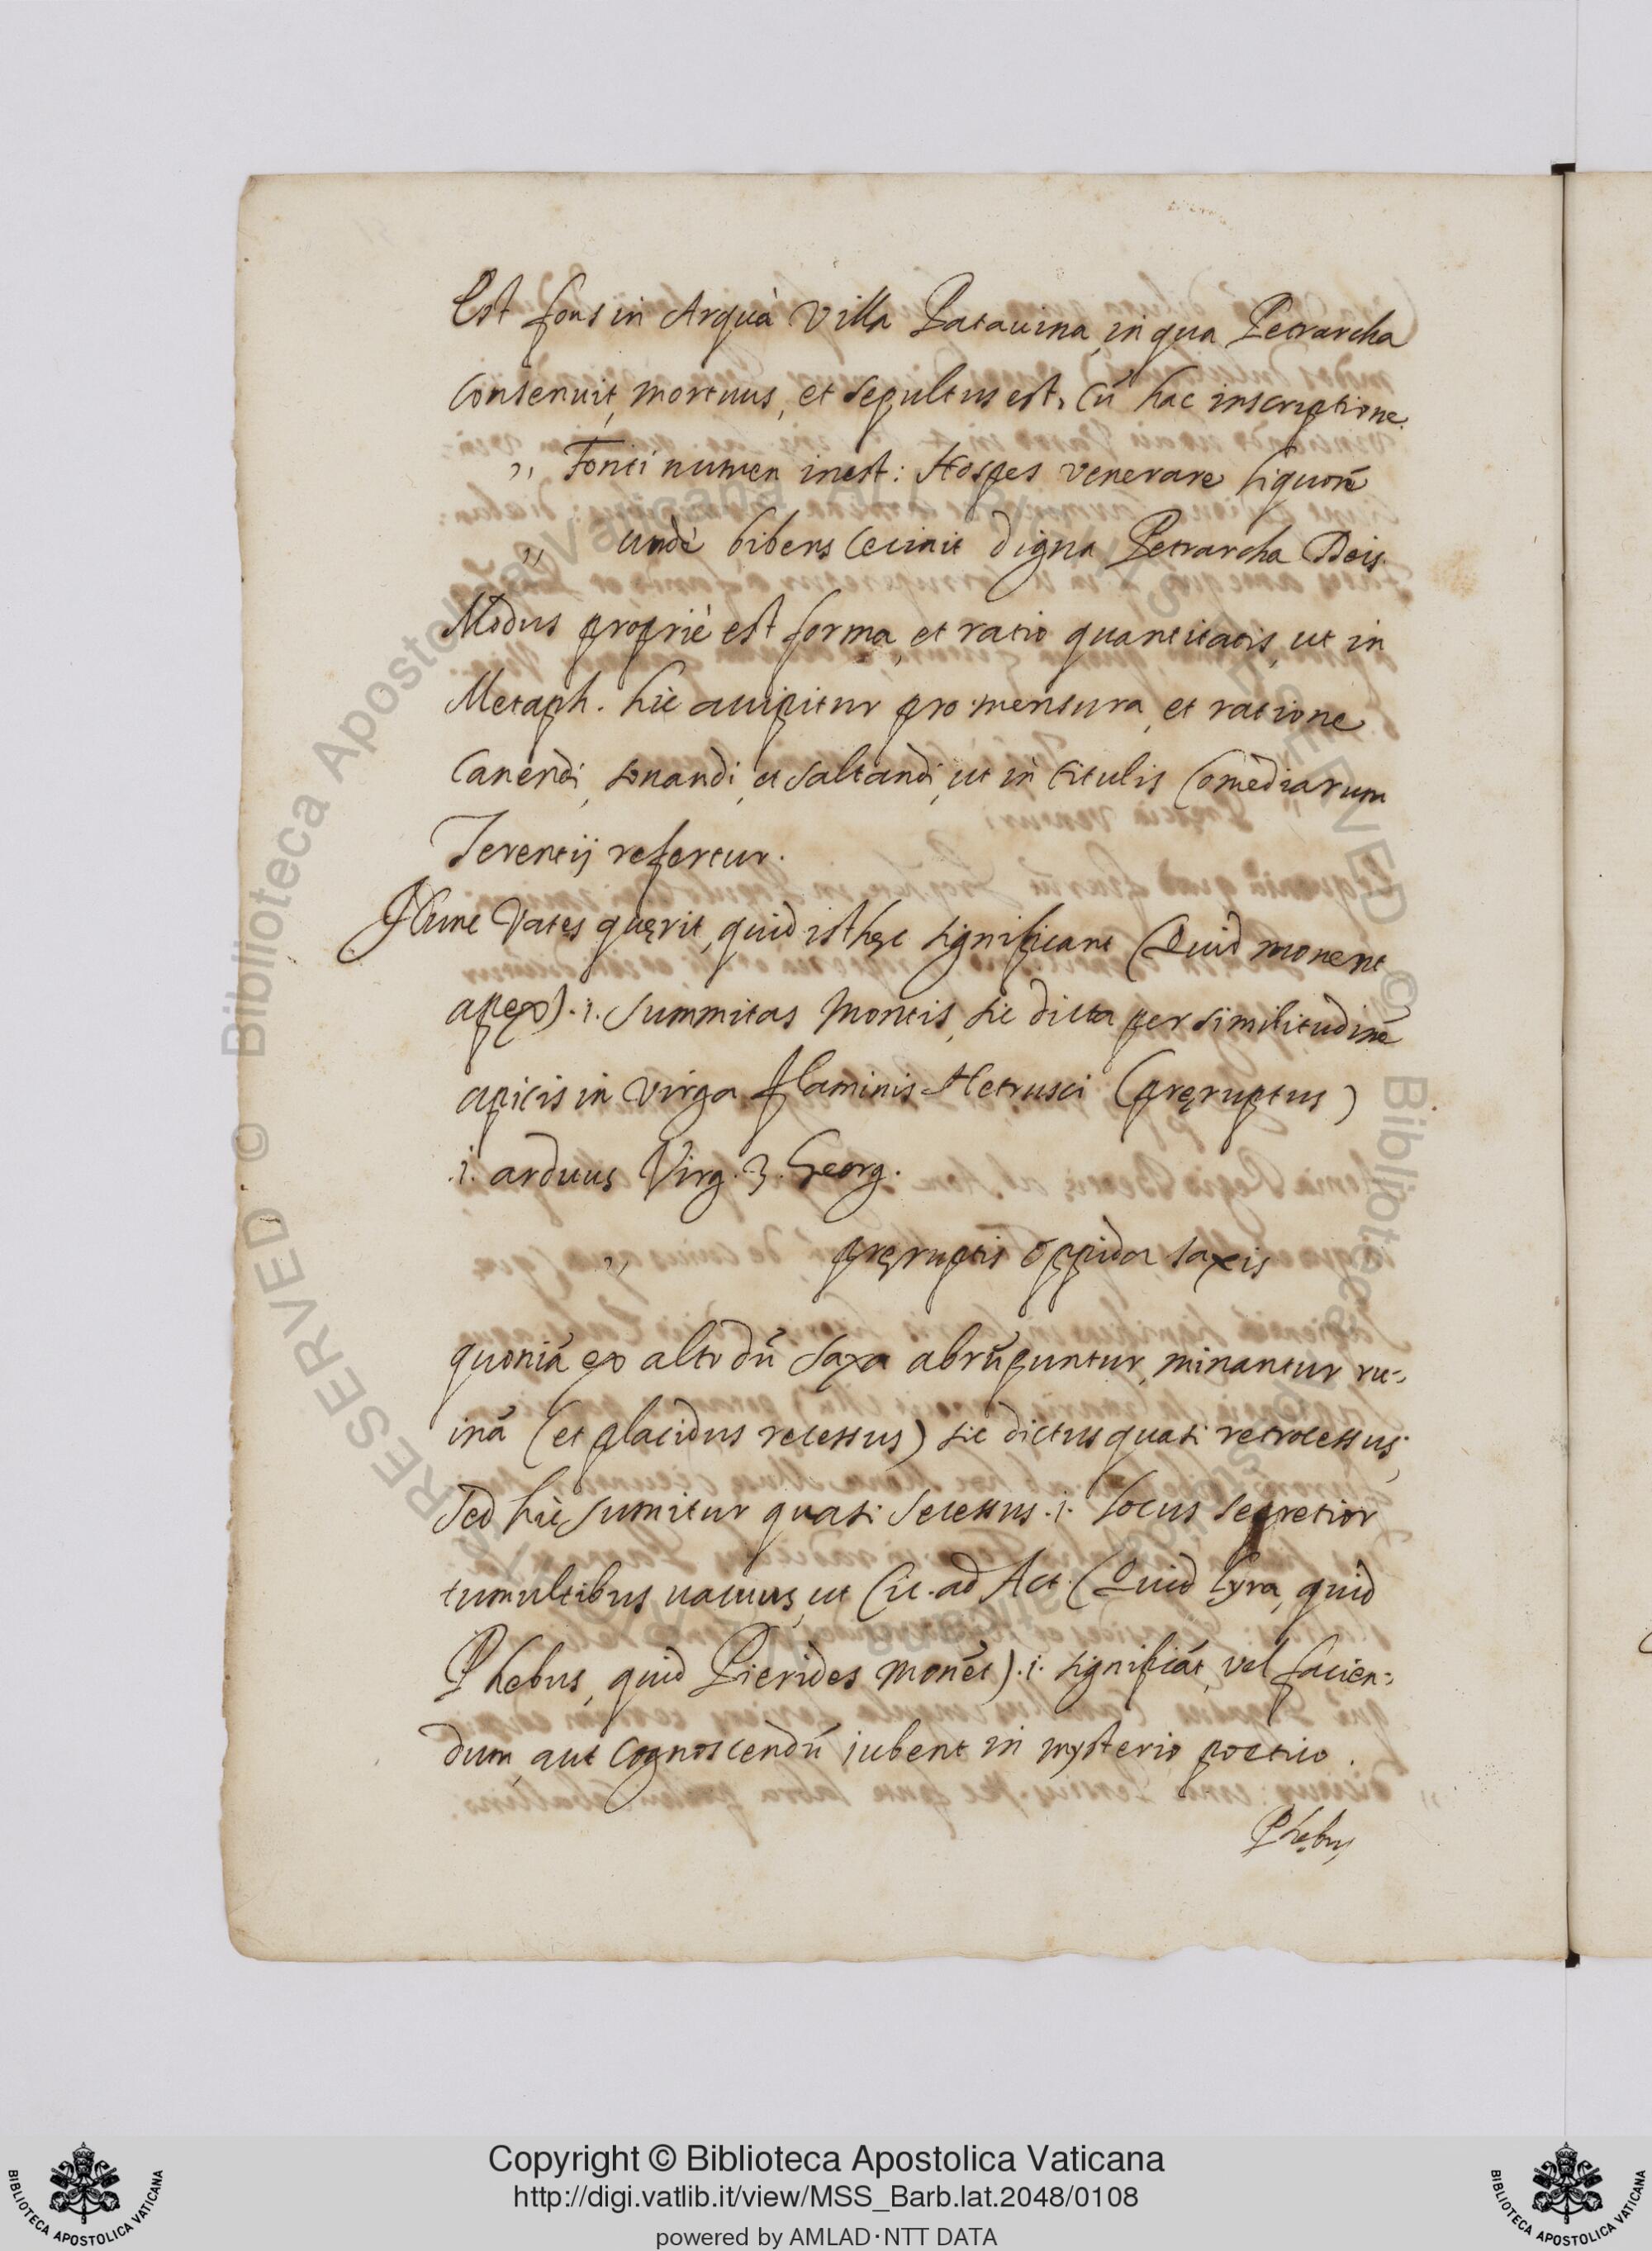 Est fons in Arquà Villa Patauina, in qua Petrarcha
Consenuit, mortuus, et sepultus est, cũ hac inscriptione.
,, Fonti numen inest: Hospes venerare liquorẽ
,, undè bibens Cecinit digna Petrarcha Deis.
Modus propriè est forma, et ratio quantitatis, ut in
Metaph. hic accipitur pro mensura, et ratione
Canendi, sonandi, et saltandi, ut in titulis Comediarum
Terentij refertur.
Hunc Vates quęrit, quid isthęc significant (Quid monent
apex) .i. summitas Montis, sic dicta per similitudinẽ
apicis in virga flaminis Hetrusci (pręruptus)
.i. arduus Virg. 3. Georg.
,, pręruptis oppida saxis
quoniã ex alto dũ saxa abrũpuntur, minantur ru-
inã (et placidus recessus) sic dictus quasi retrocessus;
Sed hic sumitur quasi secessus .i. locus secretior
tumultibus vacuus, ut Cic. ad Act. (Quid lyra, quid
Phebus, quid Pierides monẽt) .i. significãt, vel facien-
dum, aut Cognoscendũ iubent in mysterio poetico.
Phębus
RESERVED © Biblioteca Apostolica Vaticana
Copyright © Biblioteca Apostolica Vaticana
http://digi.vatlib.it/view/MSS_Barb.lat.2048/0108
powered by AMLAD·NTT DATA
BIBLIOTECA APOSTOLICA VATICANA
BIBLIOTECA APOSTOLICA VATICANA